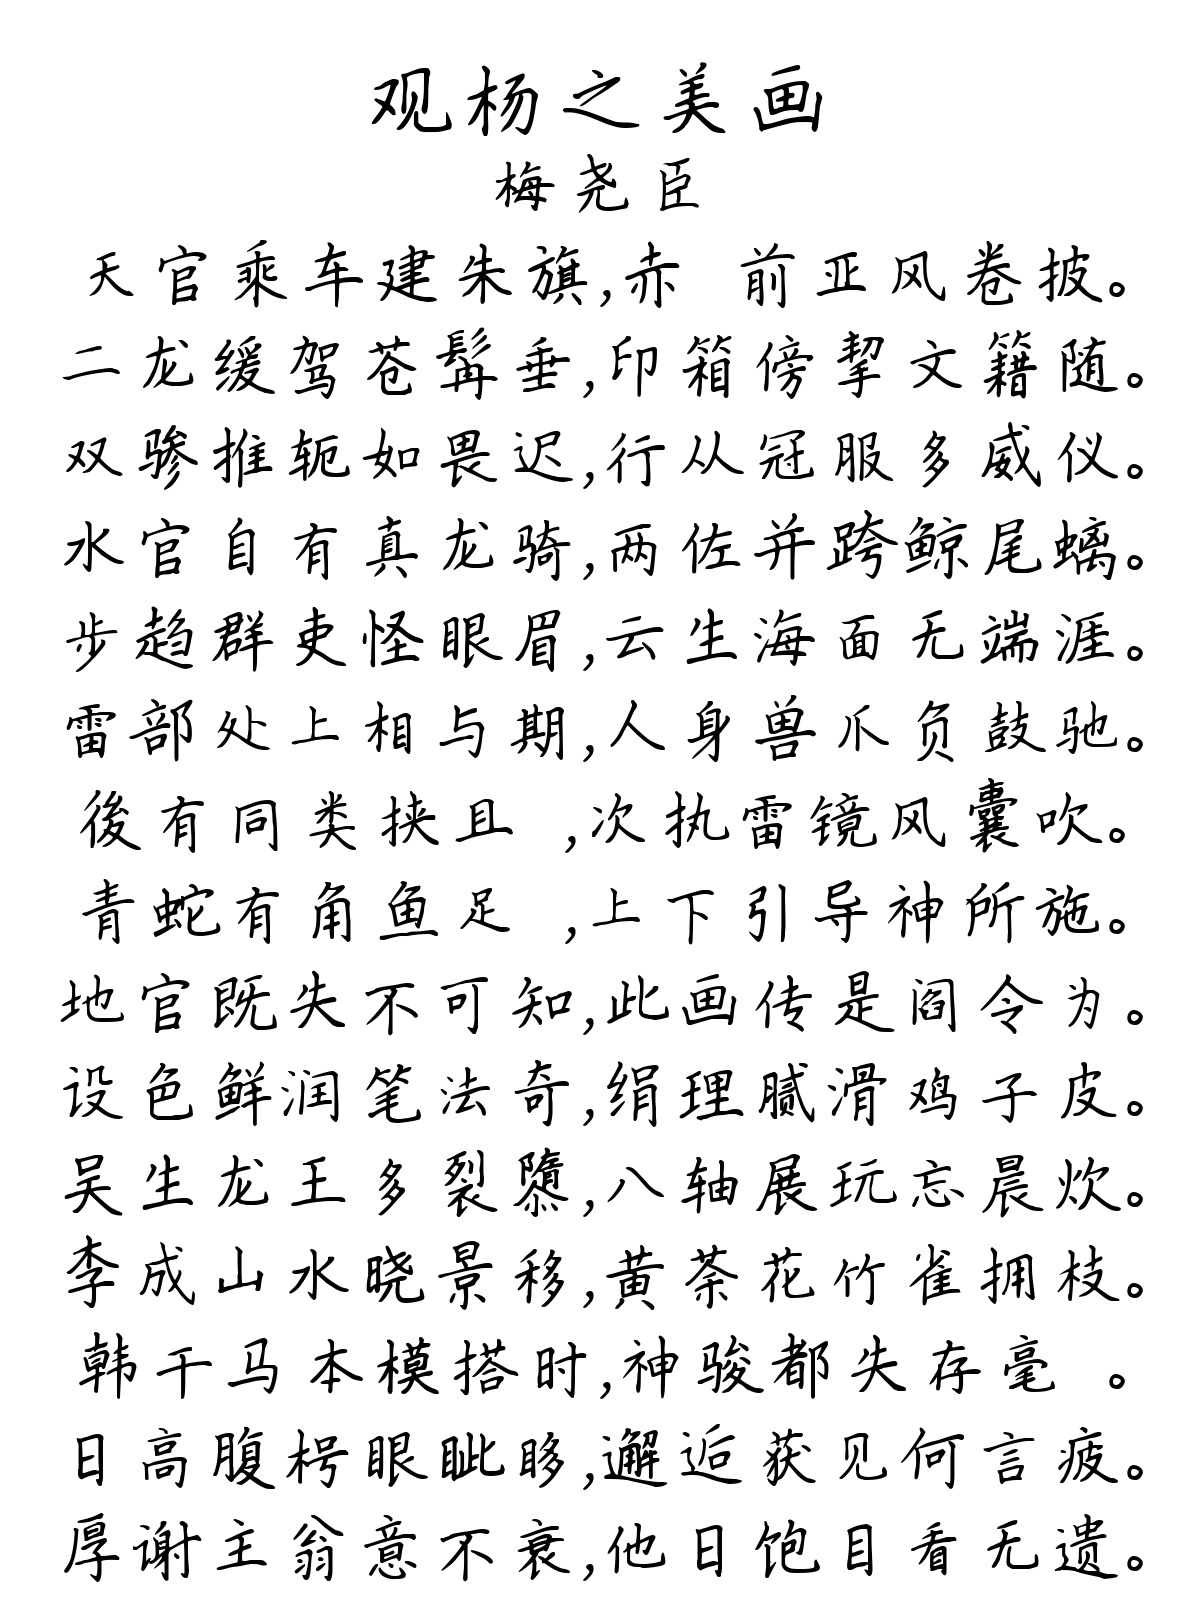 观杨之美画
梅尧臣
天官乘车建朱旗,赤 前亚风卷披。
二龙缓驾苍髯垂,印箱傍挈文籍随。
双骖推轭如畏迟,行从冠服多威仪。
水官自有真龙骑,两佐并跨鲸尾螭。
步趋群吏怪眼眉,云生海面无端涯。
雷部处上相与期,人身兽爪负鼓驰。
後有同类挟且 ,次执雷镜风囊吹。
青蛇有角鱼足 ,上下引导神所施。
地官既失不可知,此画传是阎令为。
设色鲜润笔法奇,绢理腻滑鸡子皮。
吴生龙王多裂隳,八轴展玩忘晨炊。
李成山水晓景移,黄荼花竹雀拥枝。
韩干马本模搭时,神骏都失存毫 。
日高腹枵眼眦眵,邂逅获见何言疲。
厚谢主翁意不衰,他日饱目看无遗。